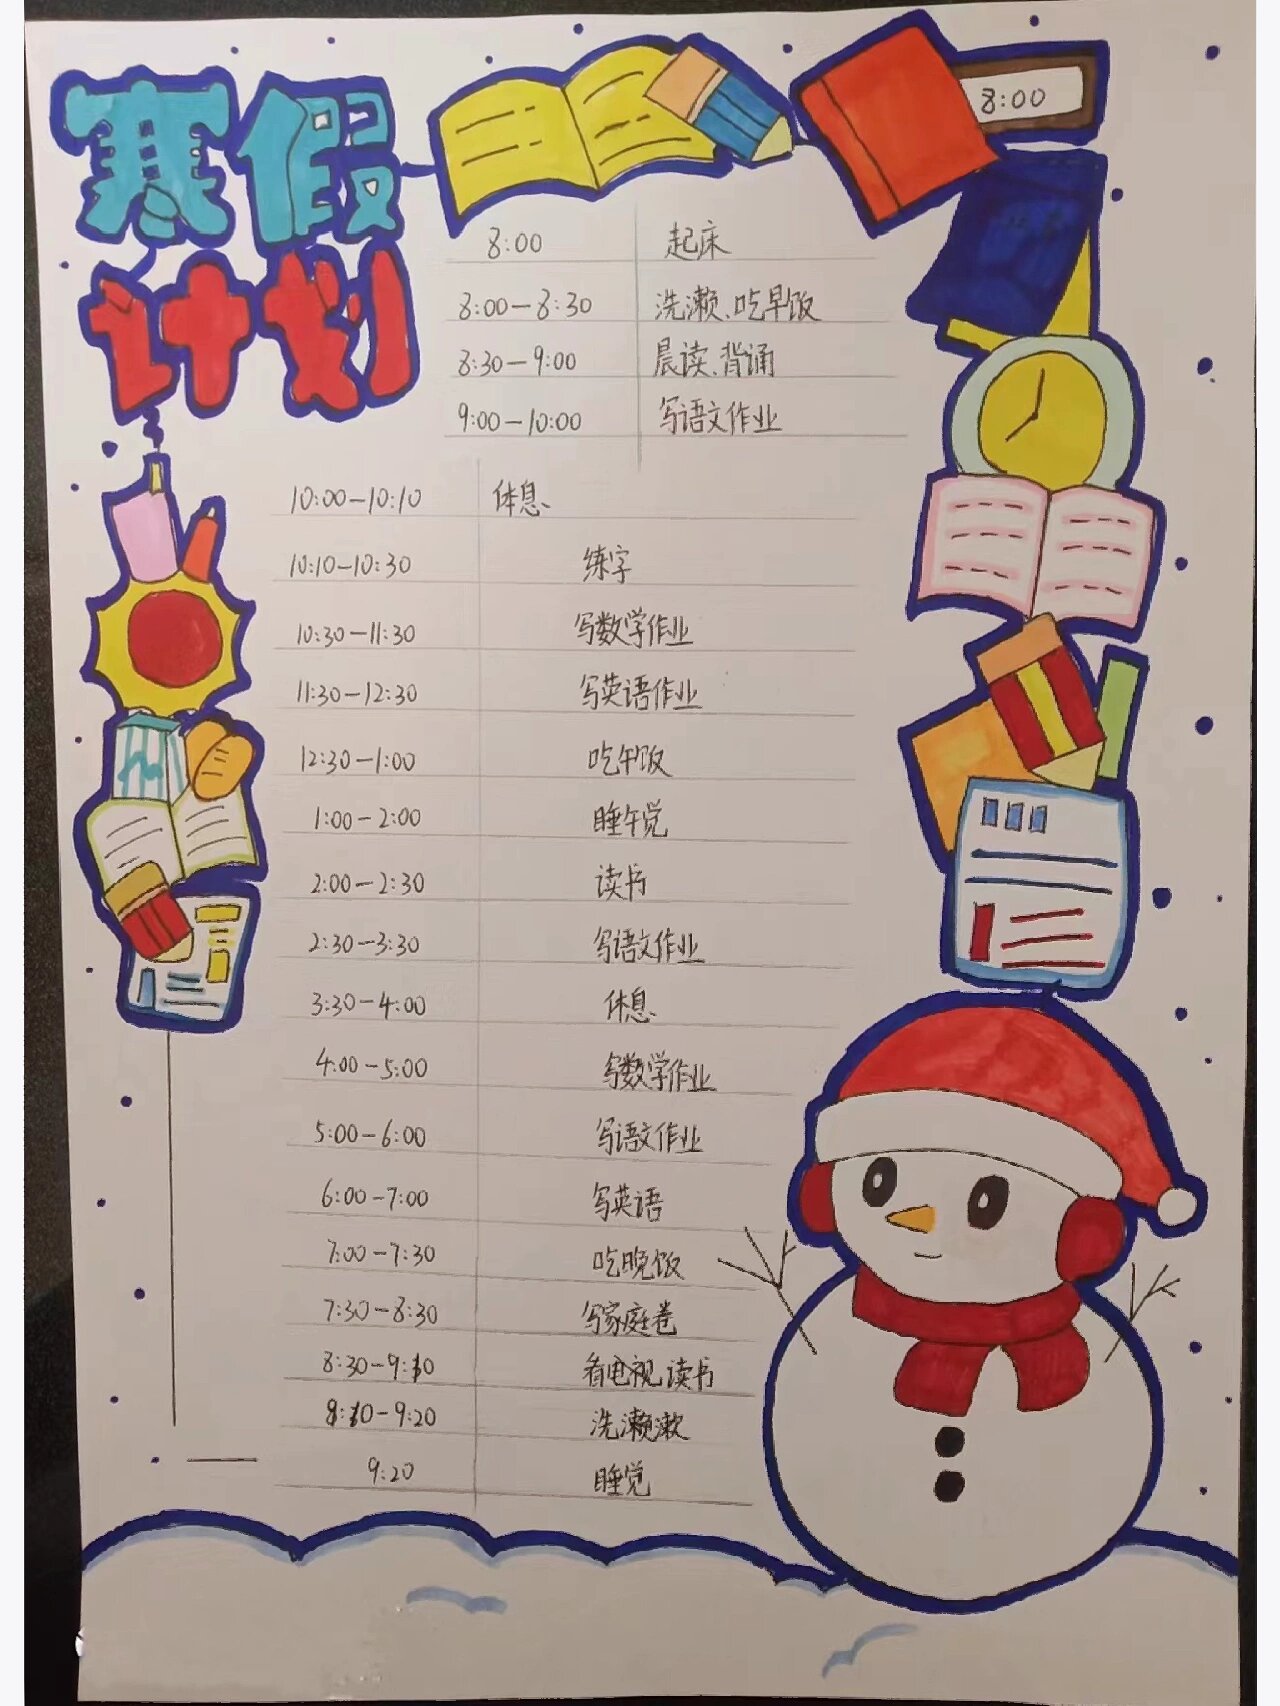 寒假
计划
8:00
8:00 起床
8:00—8:30 洗濑、吃早饭
8:30—9:00 晨读、背诵
9:00—10:00 写语文作业
10:00—10:10 休息
10:10—10:30 练字
10:30—11:30 写数学作业
11:30—12:30 写英语作业
12:30—1:00 吃午饭
1:00—2:00 睡午觉
2:00—2:30 读书
2:30—3:30 写语文作业
3:30—4:00 休息
4:00—5:00 写数学作业
5:00—6:00 写语文作业
6:00—7:00 写英语
7:00—7:30 吃晚饭
7:30—8:30 写家庭卷
8:30—9:10 看电视、读书
9:10—9:20 洗濑漱
9:20 睡觉